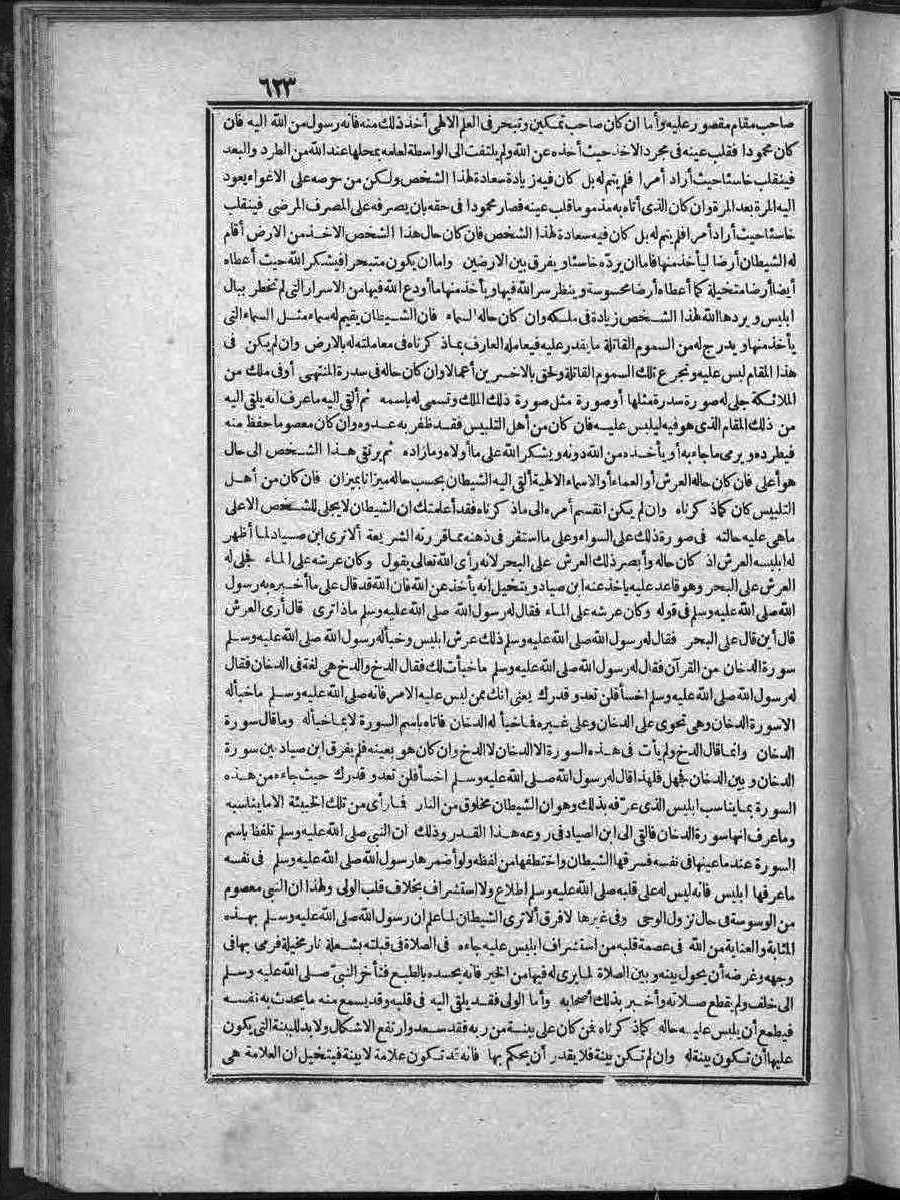 ٦٢٣
صاحب مقام مقصور عليه وأما ان كان صاحب تمكين وتبحر فى العلم الالهى أخذ ذلك منه فانه رسول من الله اليه فان
كان محمودا فقلب عينه فى مجرد الاخذ حيث أخذه عن الله ولم يلتفت الى الواسطة لعلمه بمحلها عند الله من الطرد والبعد
فينقلب خاسئا حيث أراد أمرا فلم يتم له بل كان فيه زيادة سعادة لهذا الشخص ولكن من حرصه على الاغواء يعود
اليه المرة بعد المرة وان كان الذى أتاه به مذموما قلب عينه فصار محمودا فى حقه بان يصرفه على المصرف المرضى فينقلب
خاسئا حيث أراد أمرا فلم يتم له بل كان فيه سعادة لهذا الشخص فان كان حال هذا الشخص الاخذ من الارض أقام
له الشيطان أرضا ليأخذ منها فاما ان يرده خاسئا ويفرق بين الارضين واما ان يكون متبحرا فيشكر الله حيث أعطاه
أيضا أرضا متخيلة كما أعطاه أرضا محسوسة وينظر سر الله فيها ويأخذ منها ما أودع الله فيها من الاسرار التى لم تخطر ببال
ابليس ويردها الله لهذا الشخص زيادة فى ملكه وان كان حاله السماء فان الشيطان يقيم له سماء مثل السماء التى
يأخذ منها ويدرج له من السموم القاتلة ما يقدر عليه فيعامله العارف بماذ كرناه فى معاملته له بالارض وان لم يكن فى
هذا المقام لبس عليه وتجرع تلك السموم القاتلة ولحق بالاخسرين أعمالا وان كان حاله فى سدرة المنتهى أو فى ملك من
الملائكة جلى له صورة سدرة مثلها أو صورة مثل صورة ذلك الملك وتسمى له باسمه ثم ألقى اليه ما عرف انه يلقى اليه
من ذلك المقام الذى هو فيه ليلبس عليه فان كان من أهل التلبيس فقد ظفر به عدوه وان كان معصوما حفظ منه
فيطرده ويرمى ما جاء به أو يأخذه من الله دونه ويشكر الله على ما أولاه وما زاده ثم يرتقى هذا الشخص الى حال
هو أعلى فان كان حاله العرش أو العماء أو الاسماء الالهية ألقى اليه الشيطان بحسب حاله ميزانا بميزان فان كان من أهل
التلبيس كان كماذ كرناه وان لم يكن انقسم أمره الى ماذ كرناه فقد أعلمتك ان الشيطان لا يجلى للشخص الاعلى
ما هى عليه حالته فى صورة ذلك على السواء وعلى ما استقر فى ذهنه مما قررته الشريعة ألا ترى ابن صياد لما أظهر
له ابليسه العرش اذ كان حاله وأبصر ذلك العرش على البحر لانه رأى الله تعالى يقول وكان عرشه على الماء فجلى له
العرش على البحر وهو قاعد عليه يأخذ عنه ابن صياد ويتخيل انه يأخذ عن الله فان الله قد قال على ما أخبره به رسول
الله صلى الله عليه وسلم فى قوله وكان عرشه على الماء فقال له رسول الله صلى الله عليه وسلم ماذا ترى قال أرى العرش
قال أين قال على البحر فقال له رسول الله صلى الله عليه وسلم ذلك عرش ابليس وخبأ له رسول الله صلى الله عليه وسلم
سورة الدخان من القرآن فقال له رسول الله صلى الله عليه وسلم ما خبأت لك فقال الدخ والدخ هى لغة فى الدخان فقال
له رسول الله صلى الله عليه وسلم اخسأ فلن تعدو قدرك يعنى انك ممن لبس عليه الامر فانه صلى الله عليه وسلم ما خبأ له
الا سورة الدخان وهى تحوى على الدخان وعلى غيره فما خبأ له الدخان فاتاه باسم السورة لا بما خبأ له وما قال سورة
الدخان وانما قال الدخ ولم يأت فى هذه السورة الا الدخان لا الدخ وان كان هو بعينه فلم يفرق ابن صياد بين سورة
الدخان وبين الدخان فجهل فلهذا قال له رسول الله صلى الله عليه وسلم اخسأ فلن تعدو قدرك حيث جاءه من هذه
السورة بما يناسب ابليس الذى عرفه بذلك وهو ان الشيطان مخلوق من النار فما رأى من تلك الخبيئة الا ما يناسبه
وما عرف انها سورة الدخان فالقى الى ابن الصياد فى روعه هذا القدر وذلك ان النبى صلى الله عليه وسلم تلفظ باسم
السورة عند ما عينها فى نفسه فسرقها الشيطان واختطفها من لفظه ولو أضمرها رسول الله صلى الله عليه وسلم فى نفسه
ما عرفها ابليس فانه ليس له على قلبه صلى الله عليه وسلم اطلاع ولا استشراف بخلاف قلب الولى ولهذا ان النبى معصوم
من الوسوسة فى حال نزول الوحى وفى غيرها لا فرق ألا ترى الشيطان لما علم ان رسول الله صلى الله عليه وسلم بهذه
المثابة والعناية من الله فى عصمة قلبه من استشراف ابليس عليه جاءه فى الصلاة فى قبلته بشعلة نار مخيلة فرمى بها فى
وجهه وغرضه أن يحول بينه وبين الصلاة لما يرى له فيها من الخير فانه يحسده بالطبع فتأخر النبىّ صلى الله عليه وسلم
الى خلف ولم يقطع صلاته وأخبر بذلك أصحابه وأما الولى فقد يلقى اليه فى قلبه وقد يسمع منه ما يحدث به نفسه
فيطمع أن يلبس عليه حاله كماذ كرناه فمن كان على بينة من ربه فقد سعد وارتفع الاشكال ولا بد للبينة التى يكون
عليها أن تكون بينة له وان لم تكن بينة فلا يقدر أن يحكم بها فانه قد تكون علامة لا بينة فيتخيل ان العلامة هى